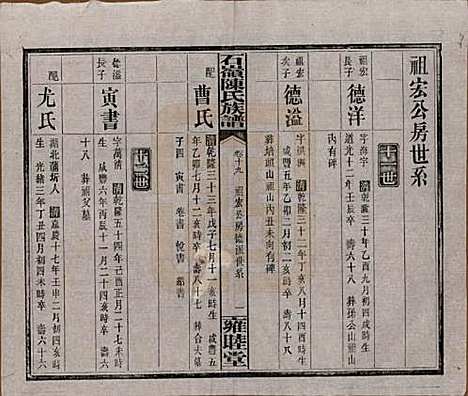 祖宏公房世系
十一世
祖宏長子
德洋
字海宇
清乾隆三十年乙酉九月初四戌時生
道光十二年
月初八亥時卒
壽六十八
葬祖山有碑
祖宏次子
德溢
字洪洲
清乾隆三十二年丁亥八月十四酉時生
咸豐五年乙卯二月初二亥時卒
葬培頭山祖山內丑未向有碑
石嶺陳氏族譜
卷十九
祖宏公房德溢世系
一
雍睦堂
配
曹氏
清乾隆三十三年戊子七月十一亥時生
咸豐五年乙卯七月十二巳時卒
壽八十七
葬合夫墓
子四
寅書
德溢長子
寅書
十二世
字萬清
清乾隆五十四年己酉正月二十七未時生
咸豐六年丙辰十一月二十四亥時卒
壽六十八
葬祖父墓
配
尤氏
湖北蒲圻人
清嘉慶十七年壬申二月初八亥時生
光緒三年丁丑四月初四未時卒
壽六十六